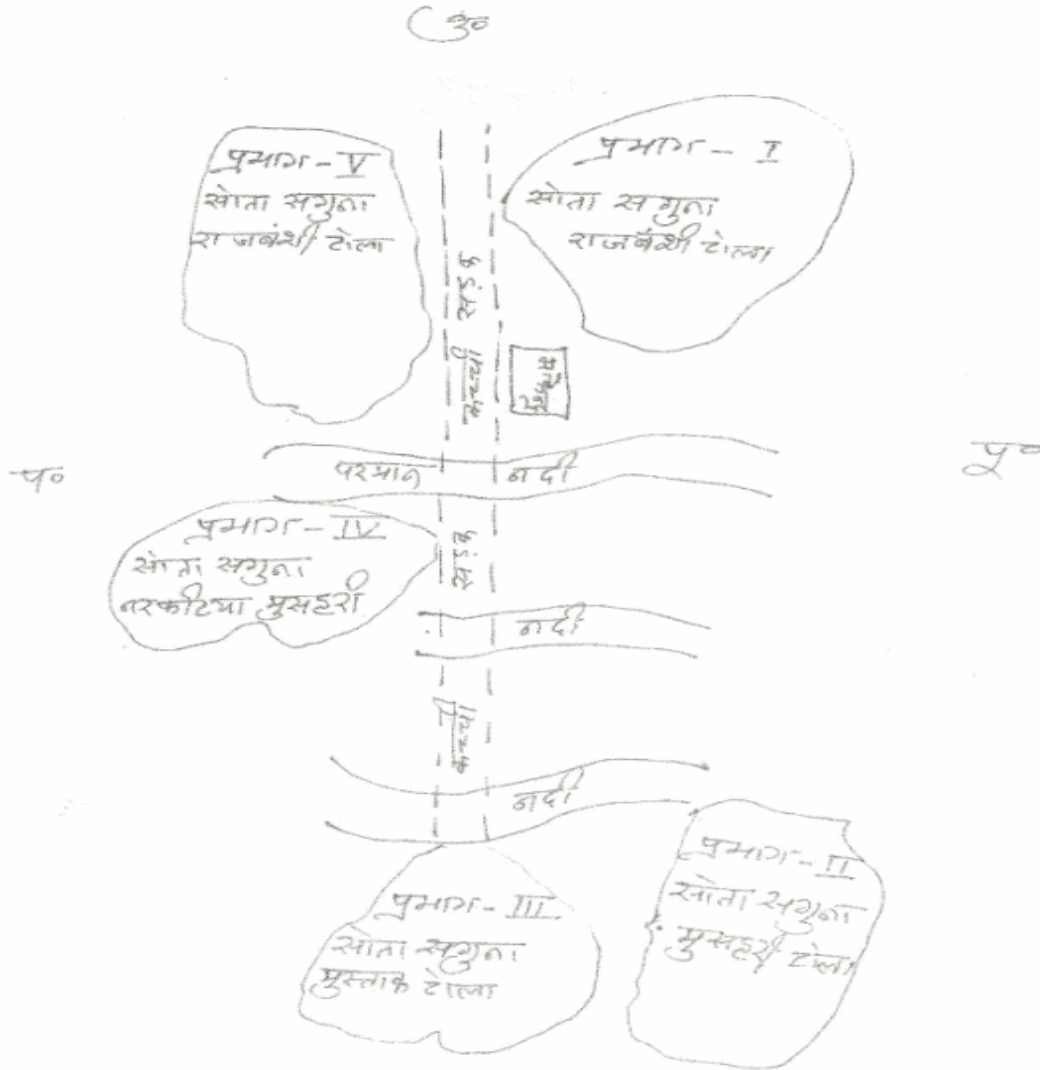 उ०
प्रभाग - V
सोता सगुना
राजबंशी टोला
प्रभाग - I
सोता सगुना
राजबंशी टोला
कच्ची सड़क
प०
परमान नदी
पू०
प्रभाग - IV
सोता सगुना
नरकटिया मुसहरी
कच्ची सड़क
नदी
नदी
प्रभाग - III
सोता सगुना
मुस्ताक टोला
प्रभाग - II
सोता सगुना
मुसहरी टोला